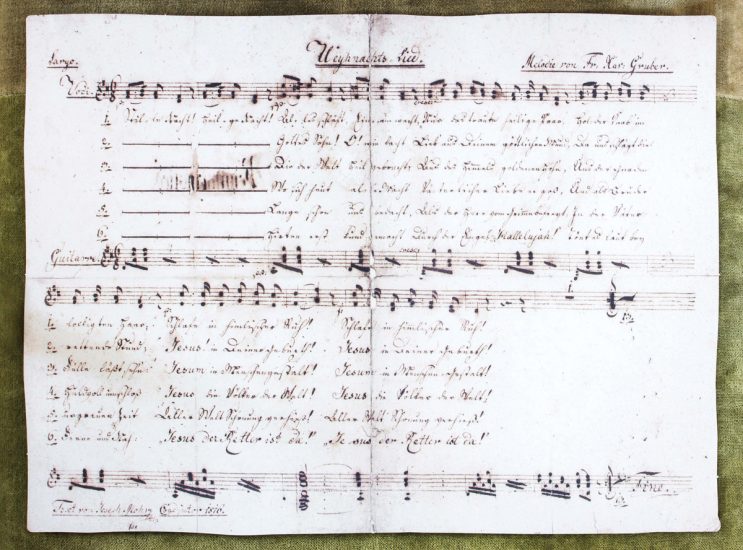 Weyhnachts-Lied.
Largo. Melodie von Fr. Xav: Gruber.
Voce
1. Stille Nacht! Heilige Nacht! Alles schläft. Eynsam wacht. Nur das traute heilige Paar. Holder Knab' im
2. Gottes Sohn! O! wie lacht Lieb' aus Deinem göttlichen Mund, Da uns schlägt die
3. Die der Welt Heil gebracht, Aus des Himmels goldenen Höhn, Aus der Gnaden
4. Wo sich heut alle Macht Väterlicher Liebe ergoß, Und als Bruder
5. Lange schon uns bedacht, Als der Herr vom Grimme befreyt, In der Väter
6. Hirten erst kund gemacht Durch der Engel Hallelujah! Tönt es laut bey
Guitarre
1. lockigten Haar; Schlafe in himmlischer Ruh! Schlafe in himmlischer Ruh!
2. rettende Stund; Jesus! in Deiner Geburth! Jesus in Deiner Geburth!
3. Fülle läßt seh'n; Jesum in Menschengestalt! Jesum in Menschengestalt!
4. Huldvoll umschloß Jesus die Völker der Welt! Jesus die Völker der Welt!
5. urgrauer Zeit Aller Welt Schonung verhieß! Aller Welt Schonung verhieß!
6. Ferne und Nah: Jesus der Retter ist da! Jesus der Retter ist da!
Fine.
Text von Joseph Mohr Coadjutor 1816.